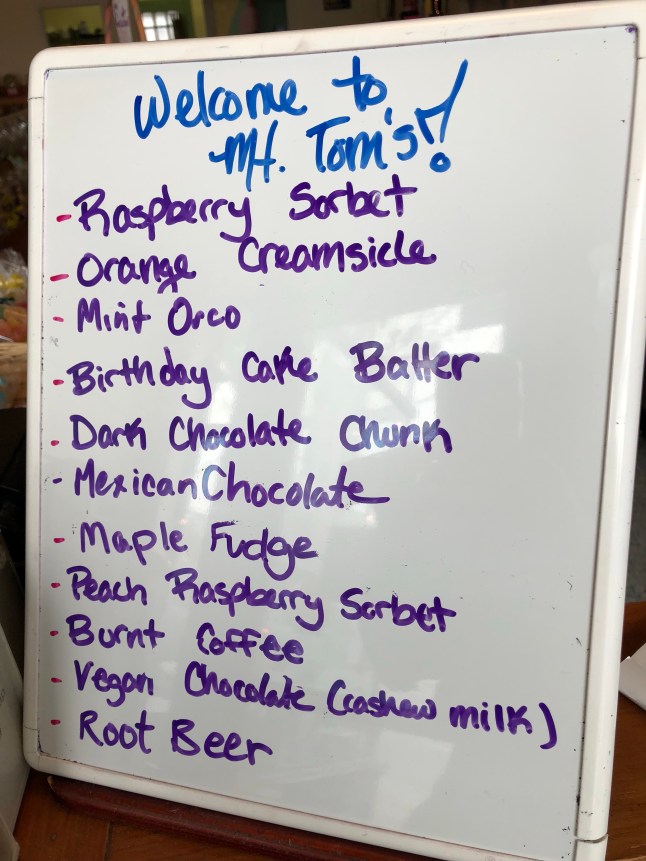 Welcome to
Mt. Tom's!
- Raspberry Sorbet
- Orange Creamsicle
- Mint Oreo
- Birthday Cake Batter
- Dark Chocolate Chunk
- Mexican Chocolate
- Maple Fudge
- Peach Raspberry Sorbet
- Burnt Coffee
- Vegan Chocolate (cashew milk)
- Root Beer